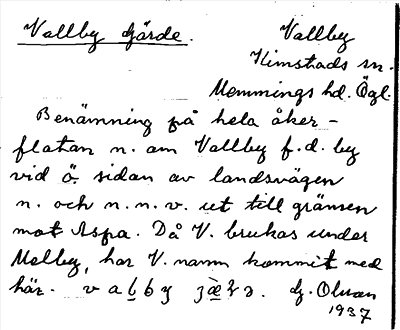 Vallby Gärde.
Vallby
Kimstads sn.
Memmings hd. Ögl.
Benämning på hela åker-
flatan n. om Vallby f.d. by
vid ö. sidan av landsvägen
n. och n.n.v. ut till gränsen
mot Aspa. Då V. brukas under
Melby, har V. namn kommit med
här. v a l b y
G. Olsson
1937